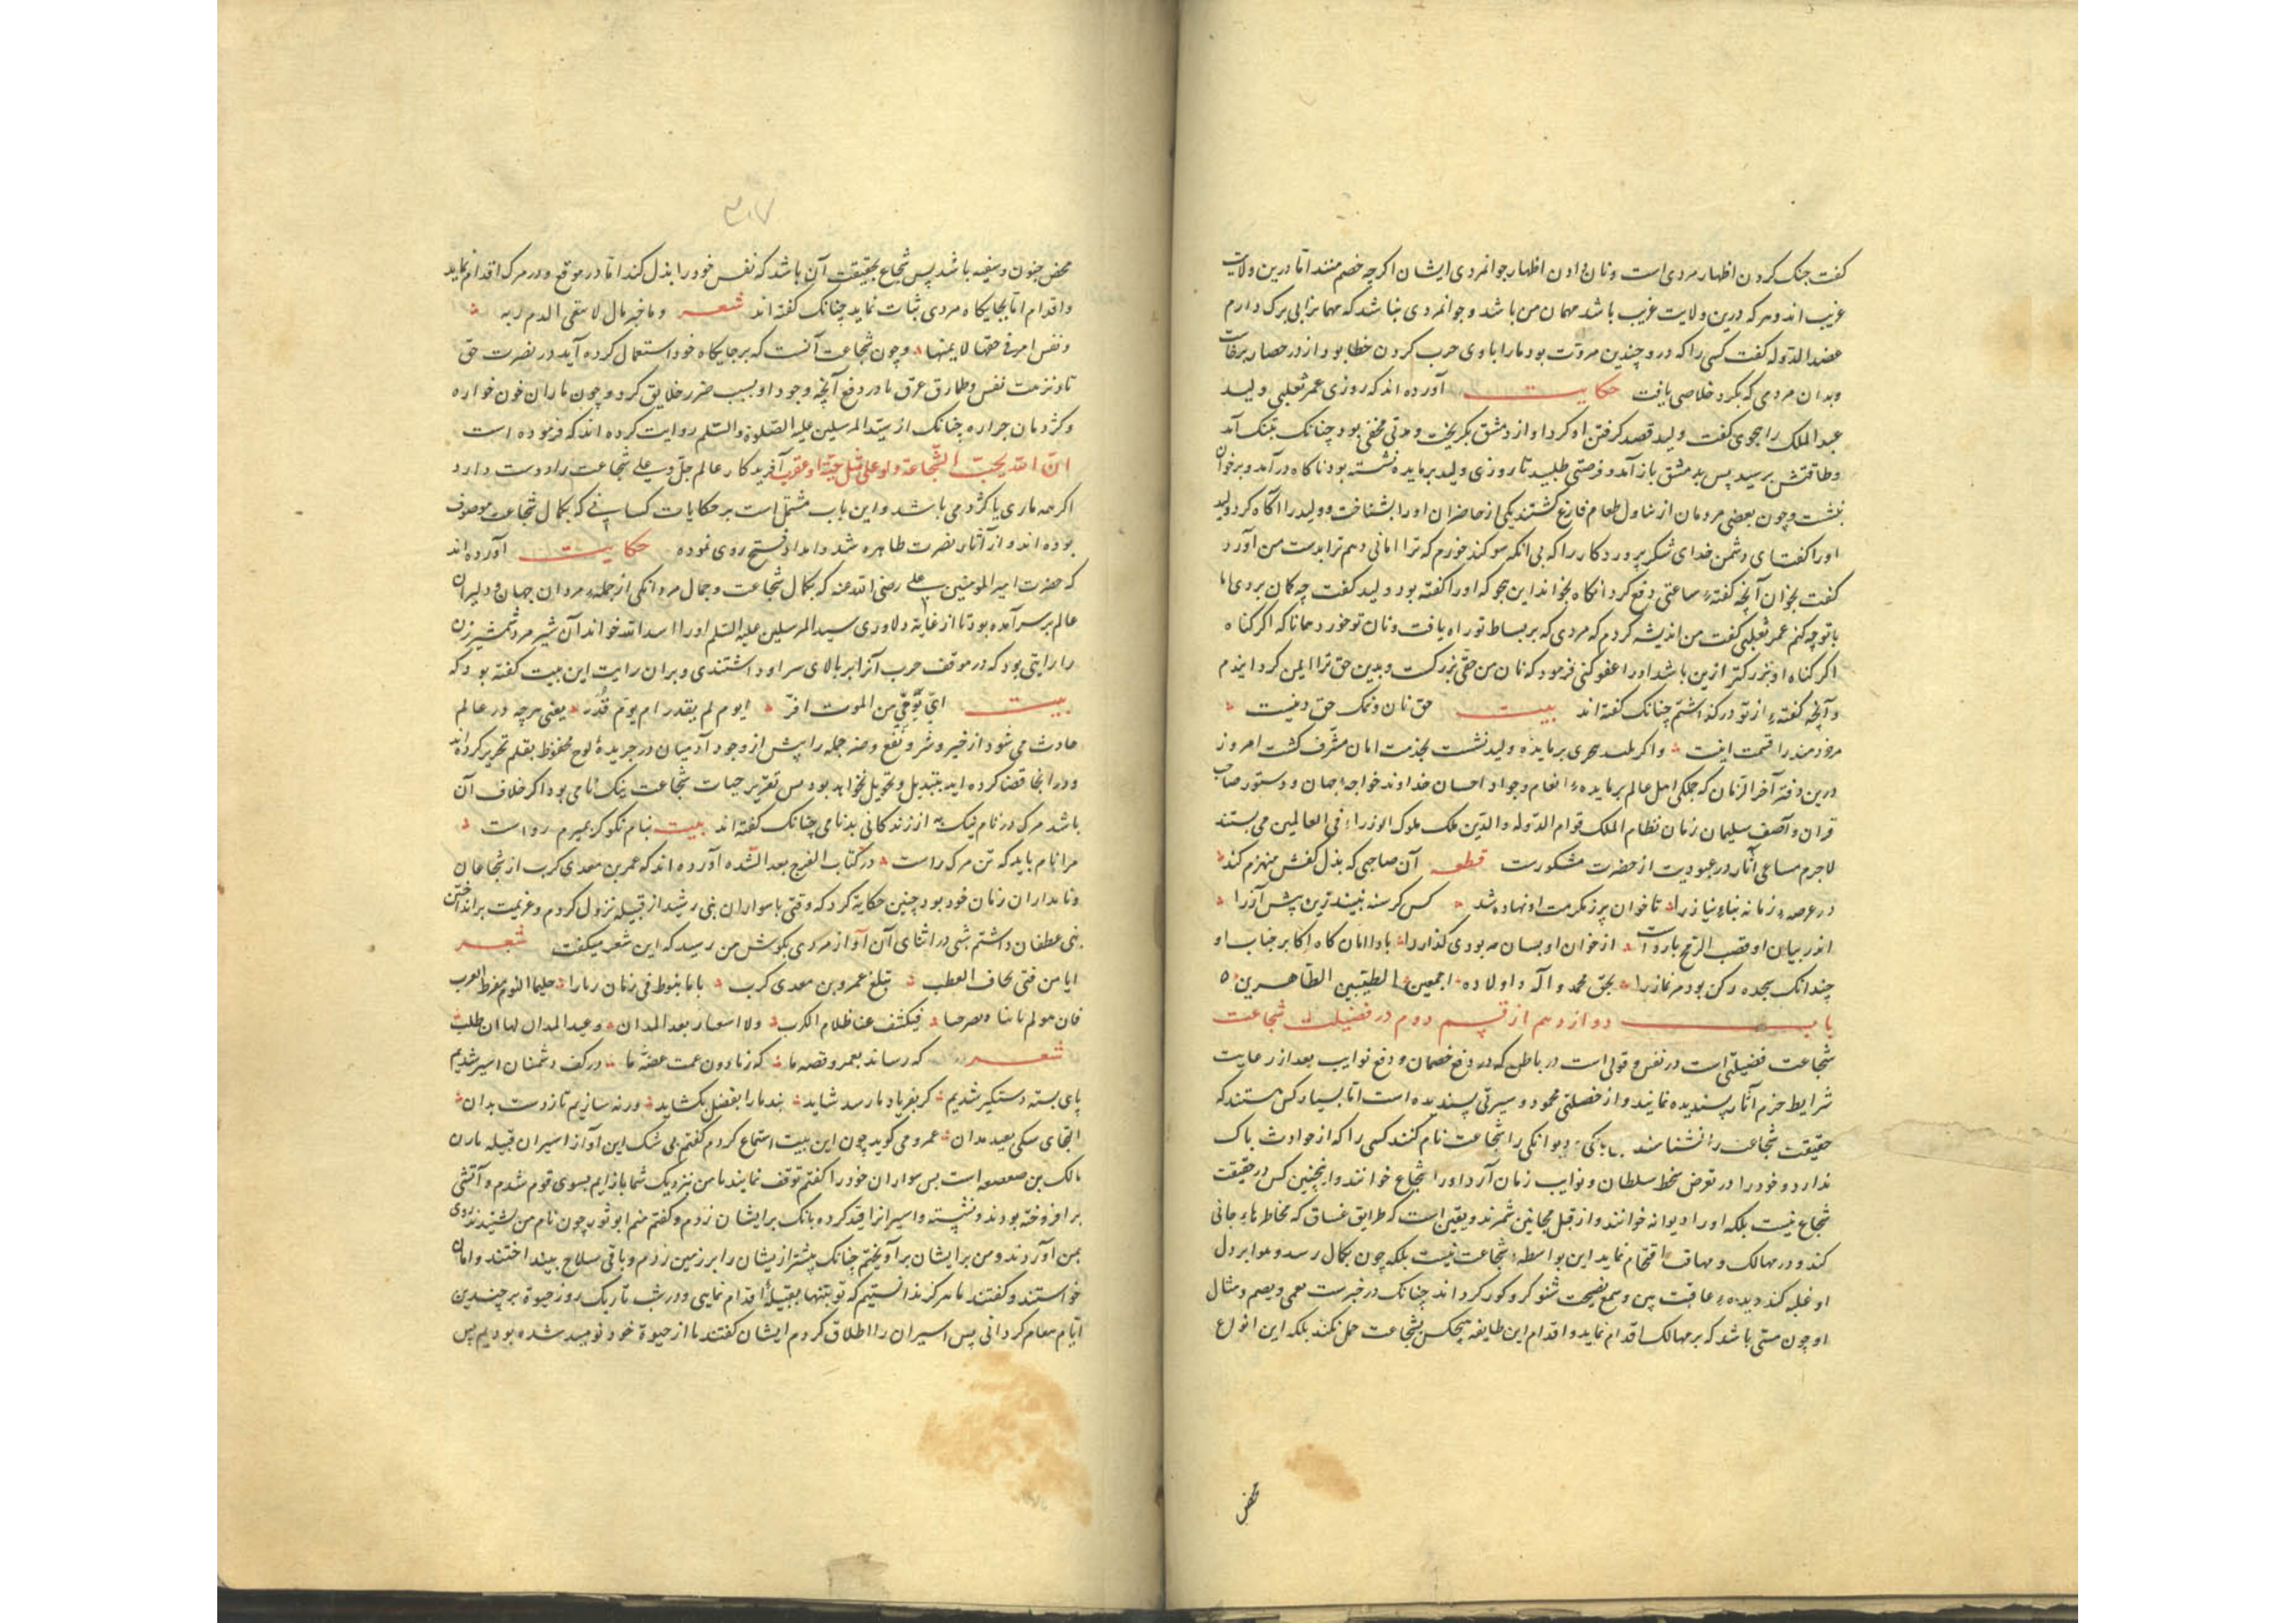 کفت جنک کردن اظهار مردی است و نان دادن اظهار جوانمردی ایشان اکرچه خصم منند اما درین ولایت
غریب اند و هرکه درین ولایت غریب باشد مهمان من باشد و جوانمردی نباشد که مهمانرا بی برک دارم
عضد الدوله کفت کسی را که درو چندین مروت بود مارا با وی حرب کردن خطا بود از در حصار برخاست
وبدان مردمی که بکرد خلاصی یافت حکایت آورده اند که روزی عمر ثعلبی ولید
عبد الملک را هجوی کفت ولید قصد کرفتن او کرد او از دمشق بکریخت و مدتی مخفی بود چنانک بتنک آمد
و طاقتش برسید پس بدمشق باز آمد و فرصتی طلبید تا روزی ولید بر مایده نشسته بود ناکاه درآمد و بر خوان
بنشست و چون بعضی مردمان از تناول طعام فارغ کشتند یکی از حاضران اورا بشناخت و ولید را آکاه کرد ولید
اورا کفت ای دشمن خدای شکر پروردکار را که بی انکه سوکند خورم که ترا امانی دهم ترا بدست من آورد
کفت بخوان آنچه کفتهٔ ساعتی دفع کرد انکاه بخواند این هجو که اورا کفته بود ولید کفت چه کمان بردی اما
با تو چه کنم عمر ثعلبی کفت من اندیشه کردم که مردی که بر بساط تو راه یافت و نان تو خورد همانا که اکر کناه
اکر کناه او بزرکتر ازین باشد اورا عفو کنی فرمود که نان من حقی بزرکست و بدین حق ترا ایمن کردانیدم
و آنچه کفتهٔ از تو درکذاشتم چنانک کفته اند بیت حق نان و نمک حق دینست
مرد خردمند را قسمت اینست و اکر بر مایدهٔ ولید نشست بخدمت امان مشرف کشت امروز
درین دفتر آخر الزمان که جملکی اهل عالم بر مایدهٔ انعام وجود و احسان خداوند خواجهٔ جهان و دستور صاحب
قران و آصف سلیمان زمان نظام الملک قوام الدوله والدین ملک ملوک الوزراء فی العالمین می نشینند
لاجرم مساعی آثار در عبودیت از حضرت مشکورست قطعه آن صاحبی که بذل کفش منهزم کند
در عرصهٔ زمانه سپاه نیاز را تا خوان پر ز مکرمت او نهاده شد کس کرسنه نبیند ترین پیش آز را
اندر بیان او قصب الرمح از خوان او بسان کذاردا بادا امان کاه اکابر جناب او
چندانک سجده رکن بود مر نماز را بحق محمد و آله و اولاده اجمعین الطیبین الطاهرین
باب دوازدهم از قسم دوم در فضیلت شجاعت
شجاعت فضیلتی است در نفس و قوتی است در باطن که در دفع خصمان و دفع نوایب بعد از رعایت
شرایط حزم آثار پسندیده نمایند و از خصلتی محمود و سیرتی پسندیده است اما بسیار کس هستند که
حقیقت شجاعت را نشناسند بی باکی و دیوانکی را شجاعت نام کنند کسی را که از حوادث باک
ندارد و خود را در تعرض سخط سلطان و نوایب زمان آرد اورا شجاع خوانند و اینچنین کس در حقیقت
شجاع نیست بلکه اورا دیوانه خوانند و از قبل مجانین شمرند و یقین است که طرایق عساق که مخاطرهاء جانی
کند و در مهالک و مهاوی اقتحام نماید این بواسطهٔ شجاعت نیست بلکه چون بکمال رسد و هوا بر دل
او غلبه کند دیدهٔ عاقبت بین و سمع نصیحت شنو کر و کور کرداند چنانک در خبرست یعمی و یصم و مثال
او چون مستی باشد که بر مهالک اقدام نماید و اقدام این طایفه هیچکس بشجاعت حمل نکند بلکه این انواع
محض
۳۰۷
محض جنون و سفه باشد پس شجاع بحقیقت آن باشد که نفس خود را بذل کند اما در موقع و در مرک اقدام نماید
و اقدام اما بجایکاه مردی ثبات نماید چنانک کفته اند شعر وما خیر مال لا یقی الدم ربه
ونفس امرء فی حقها لا یمنها و چون شجاعت آنست که بر جایکاه خود استعمال کرده آید در نصرت حق
تا و نزمت نفس و طارق عرق ما در دفع آنچه وجود او بسبب ضرر خلایق کردد چون ماران خون خواره
و کژدمان جراره چنانک از سید المرسلین علیه الصلوة والسلم روایت کرده اند که فرموده است
ان الله یحب الشجاعة ولو علی قتل حیة او عقرب آفریدکار عالم جل و علی شجاعت را دوست دارد
اکرچه ماری یا کژدمی باشد و این باب مشتمل است بر حکایات کسانی که بکمال شجاعت موصوف
بوده اند و از آثار نصرت ظاهره شد و امداد فتح روی نموده حکایت آورده اند
که حضرت امیر المومنین علی رضی الله عنه که بکمال شجاعت و جمال مردانکی از جملهٔ مردان جهان و دلیران
عالم بر سر آمده بود تا از غایة دلاوری سید المرسلین علیه السلم اورا اسد الله خواند آن شیر مرد شمشیر زن
را رایتی بود که در موقف حرب آنرا بر بالای سر او داشتندی و بران رایت این بیت کفته بود که
بیت ای یومی من الموت افر ایوم لم یقدر ام یوم قدر یعنی هرچه در عالم
حادث می شود از خیر و شر و نفع و ضر جمله را پیش از وجود آدمیان در جریدهٔ لوح محفوظ بقلم تحریر کرده اند
و در انجا قضا کرده اند بتبدیل و تحویل نخواهد بود پس تقریر حیات شجاعت نیک نامی بود اکر خلاف آن
باشد مرک در نام نیک به از زندکانی بدنامی چنانک کفته اند بیت بنام نکو کر بمیرم رواست
مرا نام باید که تن مرک راست در کتاب الفرج بعد الشده آورده اند که عمر بن معدی کرب از شجاعان
و نامداران زمان خود بود چنین حکایة کرد که وقتی با سواران بنی رشید از قبیله نزول کردم و عزیمت بر انداختن
بنی عطفان داشتم شبی در اثنای آن آواز مردی بکوش من رسید که این شعر میکفت شعر
ایا من فتی یخاف العطب تبلغ عمرو بن معدی کرب
شعر که رساند بعمرو قصه ما در کف دشمنان اسیر شدیم
پای بسته دستکیر شدیم کر بفریاد ما رسد شاید بند ما را بفضل بکشاید ورنه سازیم تا ز دست بدان
التجای عمرو می کوید چون این بیت استماع کردم کفتم بی شک این آواز اسیران قبیله ماران
مالک بن صعصعه است پس سواران خود را کفتم توقف نمایند تا من نزدیک شما باز آیم بسوی قوم شدم و آتشی
بر افروخته بودند و نشسته و اسیرانرا قید کرده بانک بر ایشان زدم و کفتم منم ابو ثور چون نام من شنیدند روی
بمن آوردند و من بر ایشان بر آویختم چنانک بیشتر از یشان را بر زمین زدم و باقی سلاح بینداختند و امان
خواستند و کفتند ما هرکز ندانستیم که تو بتنها بقبیلهٔ اقدام نمایی و در شب تاریک روز حیوة بر چندین
ایتام کردانی پس اسیران را اطلاق کردم ایشان کفتند ما از حیوة خود نومید شده بودیم پس